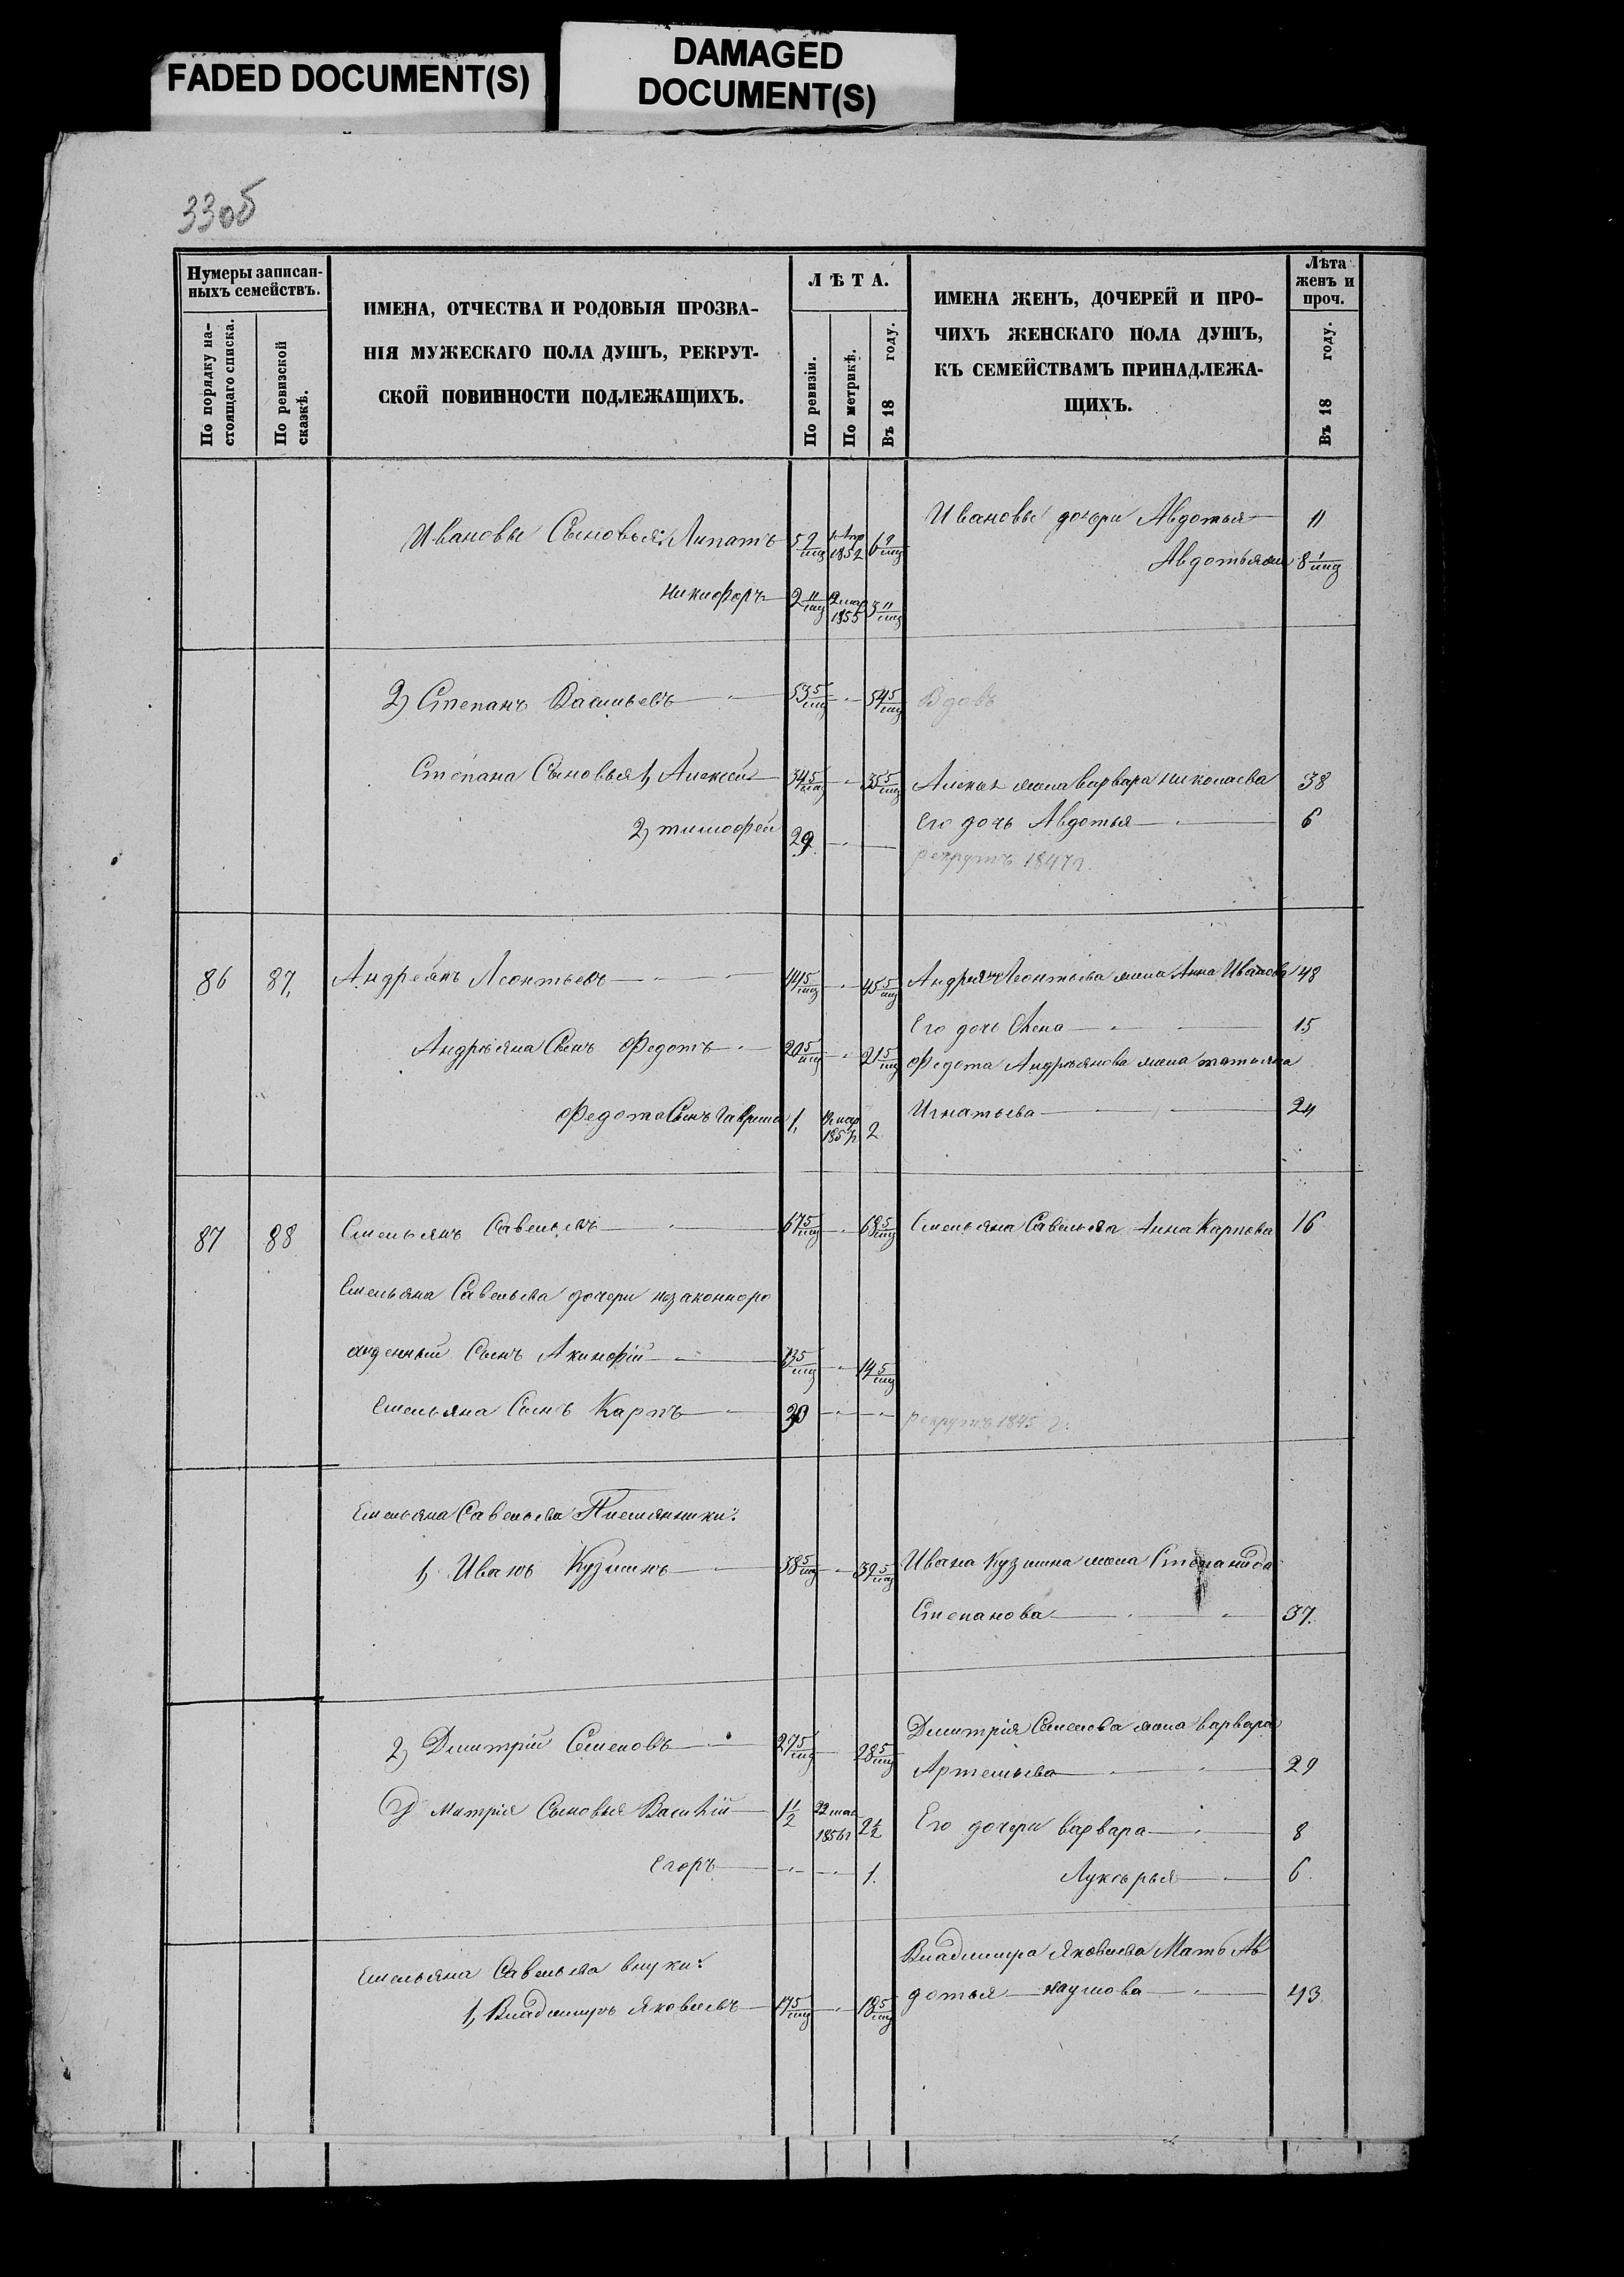 FADED DOCUMENT(S)
DAMAGED
DOCUMENT(S)
33об
Нумеры записан-
ныхъ семействъ.
По порядку на-
стоящаго списка.
По ревизской
сказкѣ.
ИМЕНА, ОТЧЕСТВА И РОДОВЫЯ ПРОЗВА-
НІЯ МУЖЕСКАГО ПОЛА ДУШЪ, РЕКРУТ-
СКОЙ ПОВИННОСТИ ПОДЛЕЖАЩИХЪ.
ЛѢТА.
По ревизіи.
По метрикѣ.
Въ 18 году.
ИМЕНА ЖЕНЪ, ДОЧЕРЕЙ И ПРО-
ЧИХЪ ЖЕНСКАГО ПОЛА ДУШЪ,
КЪ СЕМЕЙСТВАМЪ ПРИНАДЛЕЖА-
ЩИХЪ.
Лѣта
женъ и
проч.
Въ 18 году.
Ивановы дочери Авдотья 11
Ивановы Сыновья: Липатъ 5 9/мц 1852 6 9/мц
Авдотья 8 1/мц
Никифоръ 2 11/мц 1855 3 11/мц
2) Степанъ Васильевъ 53 5/мц 54 5/мц Вдовъ
Степана Сыновья 1, Алексей 34 5/мц 35 5/мц Варвара Николаева 38
Его дочь Авдотья 6
2, тимофей 29
рекрутъ 1847 г.
86 87, Андреянъ Леонтьевъ 44 5/мц 45 5/мц Леонтьева жена Анна Иванова 48
Его дочь Олена 15
Андреяна Сынъ Федотъ 20 5/мц 21 5/мц Федота Андреянова жена татьяна
Федота Сынъ Гаврила 1, 1857 2 Игнатьева 24
87 88 Емельянъ Савельевъ 67 5/мц 68 5/мц Емельяна Савельева Анна Карпова 16
Емельяна Савельева дочери незаконноро
жденный Сынъ Акинфій 13 5/мц 14 5/мц
Емельяна Сынъ Карпъ 20 рекрутъ 1845 г.
Емельяна Савельева Племянники:
1, Иванъ Кузминъ 38 5/мц 39 5/мц Ивана Кузмина жена Степанида
Степанова 37.
Дмитрія Семенова жена варвара
2, Дмитрій Семеновъ 27 5/мц 28 5/мц
Артемьева 29
Дмитрія Сыновья Василій 1 1/2 22 1856 г 2 1/2 Его дочери варвара 8
Егоръ 1. Лукерья 6.
Владимира Яковлева Мать Ав
Емельяна Савельева внуки:
дотья Наумова 43
1, Владимиръ Яковлевъ 17 5/мц 18 5/мц